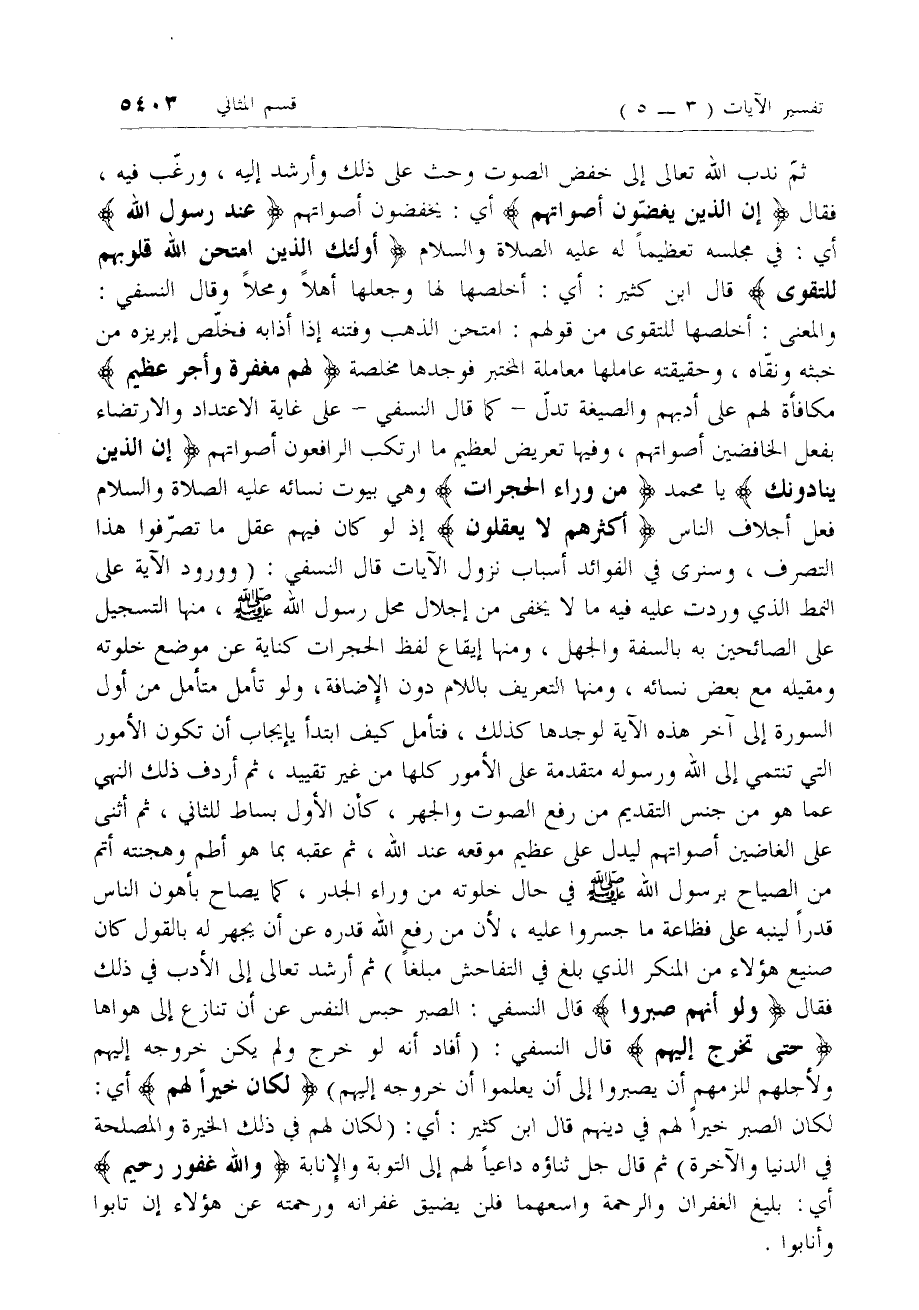 تفسير الآيات ( ٣ ــ ٥ ) قسم المثاني ٥٤٠٣
ثمّ ندب الله تعالى إلى خفض الصوت وحث على ذلك وأرشد إليه ، ورغّب فيه ،
فقال ﴿ إن الذين يغضّون أصواتهم ﴾ أي : يخفضون أصواتهم ﴿ عند رسول الله ﴾
أي : في مجلسه تعظيماً له عليه الصلاة والسلام ﴿ أولئك الذين امتحن الله قلوبهم
للتقوى ﴾ قال ابن كثير : أي : أخلصها لها وجعلها أهلاً ومحلاً وقال النسفي :
والمعنى : أخلصها للتقوى من قولهم : امتحن الذهب وفتنه إذا أذابه فخلّص إبريزه من
خبثه ونقّاه ، وحقيقته عاملها معاملة المختبر فوجدها مخلصة ﴿ لهم مغفرة وأجر عظيم ﴾
مكافأة لهم على أدبهم والصيغة تدلّ - كما قال النسفي - على غاية الاعتداد والارتضاء
بفعل الخافضين أصواتهم ، وفيها تعريض لعظيم ما ارتكب الرافعون أصواتهم ﴿ إن الذين
ينادونك ﴾ يا محمد ﴿ من وراء الحجرات ﴾ وهي بيوت نسائه عليه الصلاة والسلام
فعل أجلاف الناس ﴿ أكثرهم لا يعقلون ﴾ إذ لو كان فيهم عقل ما تصرّفوا هذا
التصرف ، وسنرى في الفوائد أسباب نزول الآيات قال النسفي : ( وورود الآية على
النمط الذي وردت عليه فيه ما لا يخفى من إجلال محل رسول الله ﷺ ، منها التسجيل
على الصائحين به بالسفة والجهل ، ومنها إيقاع لفظ الحجرات كناية عن موضع خلوته
ومقيله مع بعض نسائه ، ومنها التعريف باللام دون الإضافة، ولو تأمل متأمل من أول
السورة إلى آخر هذه الآية لوجدها كذلك ، فتأمل كيف ابتدأ بإيجاب أن تكون الأمور
التي تنتمي إلى الله ورسوله متقدمة على الأمور كلها من غير تقييد ، ثم أردف ذلك النهي
عما هو من جنس التقديم من رفع الصوت والجهر ، كأن الأول بساط للثاني ، ثم أثنى
على الغاضين أصواتهم ليدل على عظيم موقعه عند الله ، ثم عقبه بما هو أطم وهجنته أتم
من الصياح برسول الله ﷺ في حال خلوته من وراء الجدر ، كما يصاح بأهون الناس
قدراً لينبه على فظاعة ما جسروا عليه ، لأن من رفع الله قدره عن أن يجهر له بالقول كان
صنيع هؤلاء من المنكر الذي بلغ في التفاحش مبلغاً ) ثم أرشد تعالى إلى الأدب في ذلك
فقال ﴿ ولو أنهم صبروا ﴾ قال النسفي : الصبر حبس النفس عن أن تنازع إلى هواها
﴿ حتى تخرج إليهم ﴾ قال النسفي : ( أفاد أنه لو خرج ولم يكن خروجه إليهم
ولأجلهم للزمهم أن يصبروا إلى أن يعلموا أن خروجه إليهم) ﴿ لكان خيراً لهم ﴾ أي :
لكان الصبر خيراً لهم في دينهم قال ابن كثير : أي: (لكان لهم في ذلك الخيرة والمصلحة
في الدنيا والآخرة) ثم قال جل ثناؤه داعياً لهم إلى التوبة والإنابة ﴿ والله غفور رحيم ﴾
أي : بليغ الغفران والرحمة واسعهما فلن يضيق غفرانه ورحمته عن هؤلاء إن تابوا
وأنابوا .